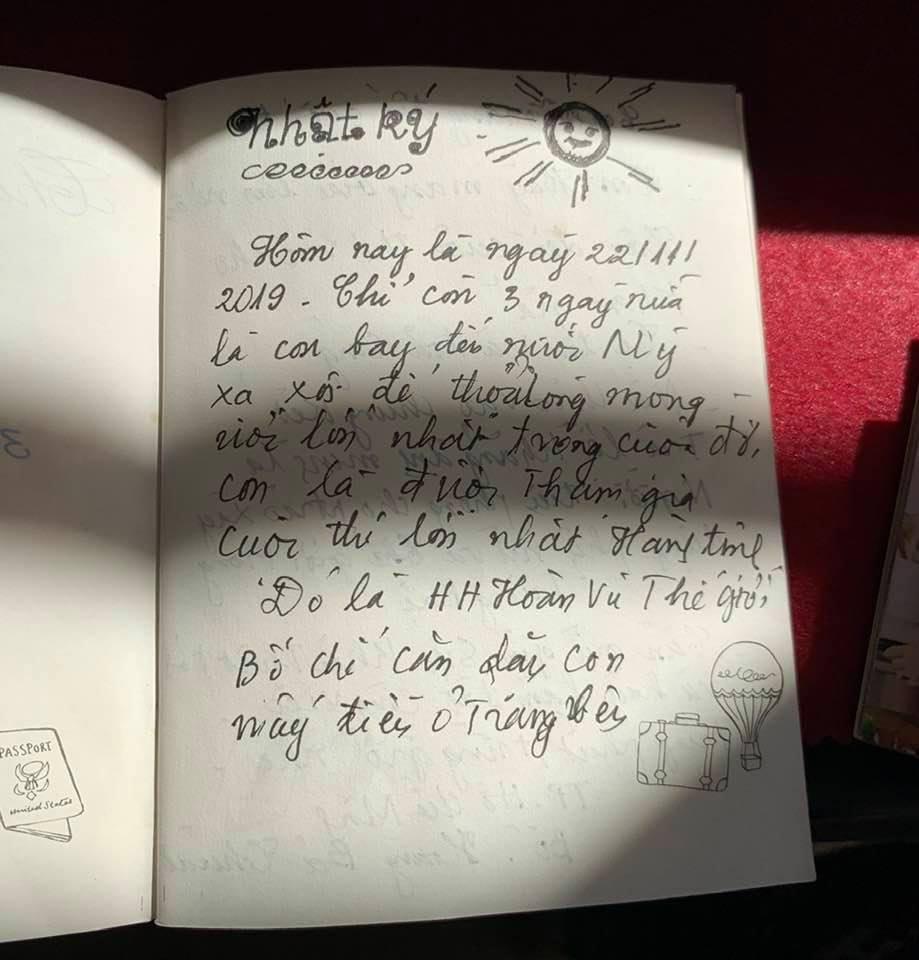 nhật ký
Hôm nay là ngày 22/11/
2019 - Chỉ còn 3 ngày nữa
là con bay đến nước Mỹ
xa xôi để thỏa lòng mong
ước lớn nhất trong cuộc đời,
con là được Tham gia
cuộc thi lớn nhất Hành tinh
Đó là HH Hoàn Vũ Thế giới,
Bố chỉ cần dạy con
mấy điều ở Trang Bên
PASSPORT
United States
3